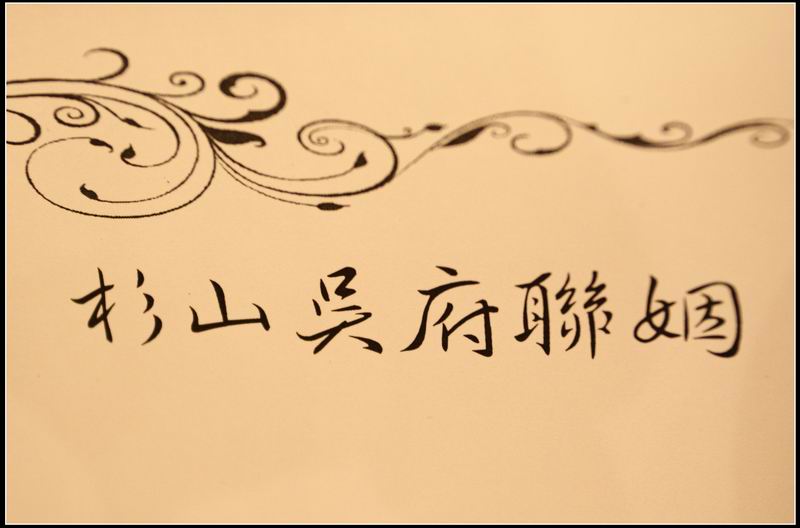 杉山吳府聯姻